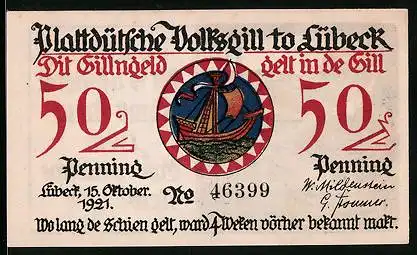 Plattdütsche Volksgill to Lübeck
Dit Gillngeld gelt in de Gill
50 50
Penning Penning
Lübeck, 15. Oktober. 1921.
No 46399
W. Mildenstein
Wo lang de Schien gelt, ward 4 Weken vörher bekannt makt.